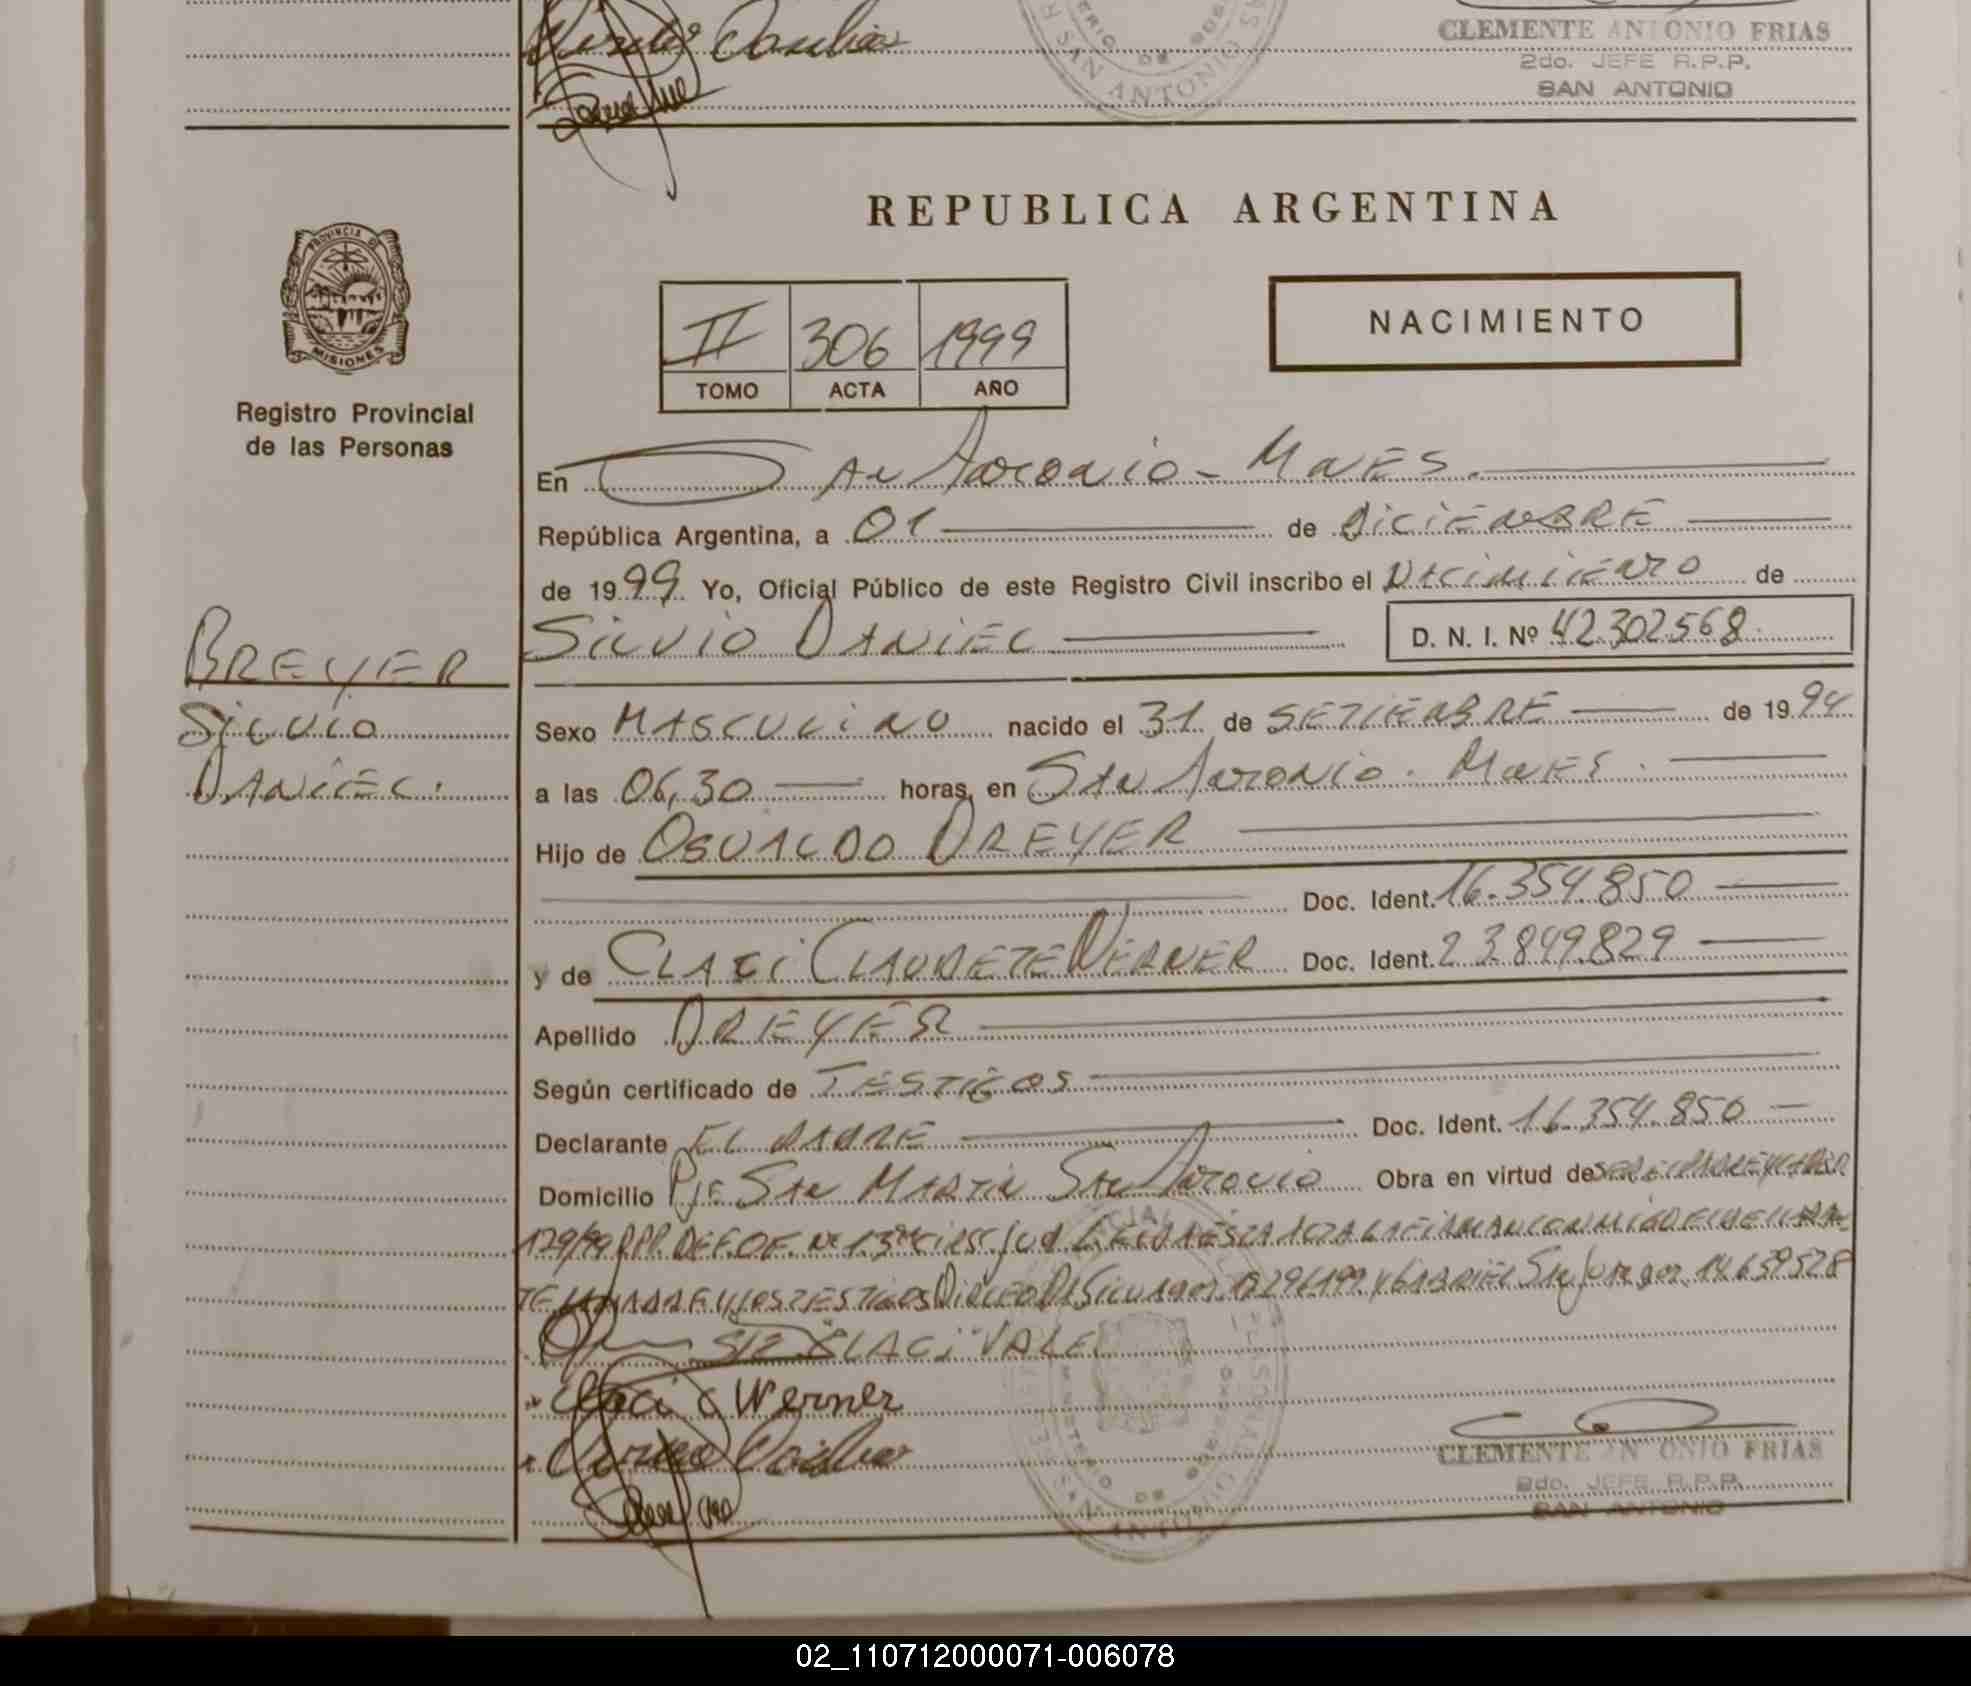 CLEMENTE ANTONIO FRIAS
2do. JEFE R.P.P.
SAN ANTONIO
SAN ANTONIO
REPUBLICA ARGENTINA
PROVINCIA DE
MISIONES
Registro Provincial
de las Personas
II 306 1999
TOMO ACTA AÑO
NACIMIENTO
En San Antonio - Mnes.
República Argentina, a 01 de Diciembre
de 1999 Yo, Oficial Público de este Registro Civil inscribo el Nacimiento de
Silvio Daniel D. N. I. Nº 42.302.568
BREYER
Silvio
Daniel.
Sexo Masculino nacido el 31 de Setiembre de 1994
a las 06,30 horas, en San Antonio. Mnes.
Hijo de Osvaldo Dreyer
Doc. Ident. 16.354.850
y de Claci Claudete Werner Doc. Ident. 23.849.829
Apellido Dreyer
Según certificado de Testigos
Declarante El Padre Doc. Ident. 16.354.850
Domicilio Pje San Martin San Antonio Obra en virtud de
129/99 RPP. DEF. OF. Nº 1. 3ª Circ. Jud. Leida esta acta la firman conmigo el declaran-
te la madre y los testigos Dirceo Da Silva 18296199 y Gabriel 14.639528
S/R Claci Vale
Claci C Werner
CLEMENTE ANTONIO FRIAS
2do. JEFE R.P.P.
SAN ANTONIO
02_110712000071-006078